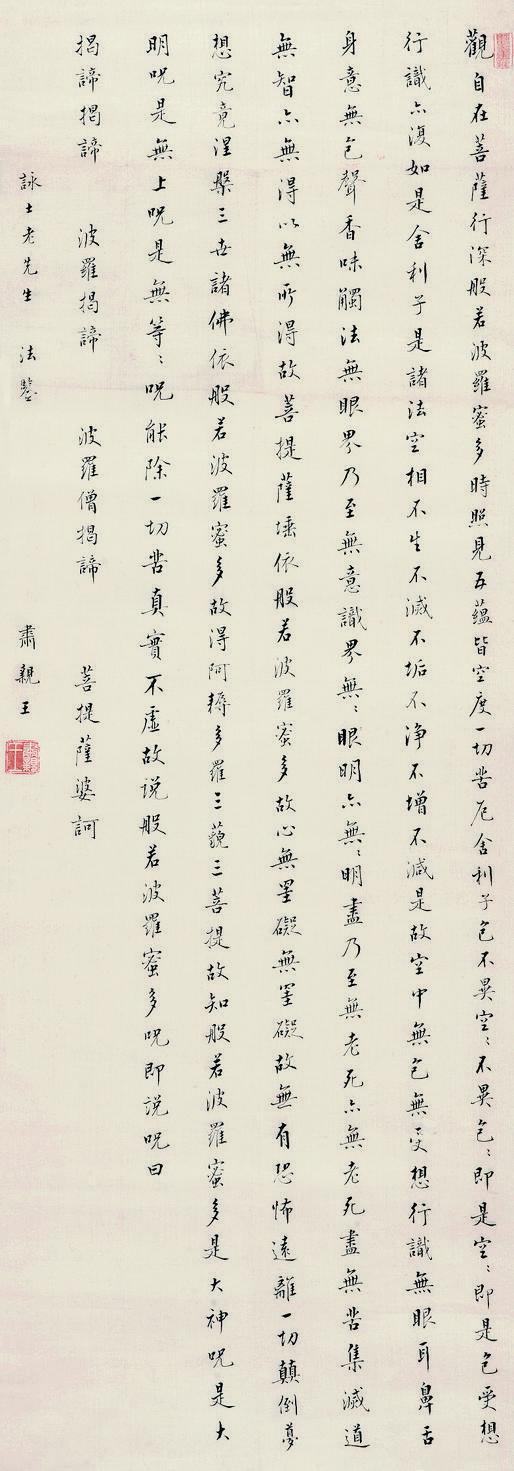 觀自在菩薩行深般若波羅蜜多時照見五蘊皆空度一切苦厄舍利子色不異空〻不異色〻即是空〻即是色受想
行識亦復如是舍利子是諸法空相不生不滅不垢不淨不增不減是故空中無色無受想行識無眼耳鼻舌
身意無色聲香味觸法無眼界乃至無意識界無〻眼明亦無〻明盡乃至無老死亦無老死盡無苦集滅道
無智亦無得以無所得故菩提薩埵依般若波羅蜜多故心無罣礙無罣礙故無有恐怖遠離一切顛倒夢
想究竟涅槃三世諸佛依般若波羅蜜多故得阿耨多羅三藐三菩提故知般若波羅蜜多是大神呪是大
明呪是無上呪是無等〻呪能除一切苦真實不虛故說般若波羅蜜多呪即說呪曰
揭諦揭諦 波羅揭諦 波羅僧揭諦 菩提薩婆訶
詠士老先生 法鑒 肅親王